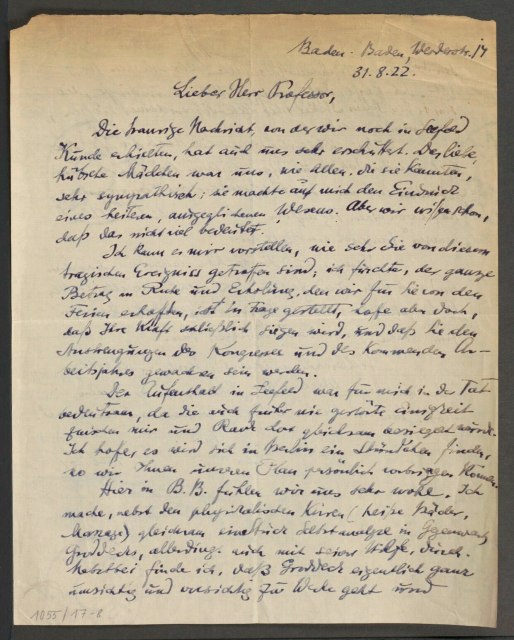 Baden-Baden, Werderstr. 14
31.8.22.
Lieber Herr Professor,
Die traurige Nachricht, von der wir noch in Seefeld
Kunde erhielten, hat auch uns sehr erschüttert. Das liebe,
hübsche Mädchen war uns, wie Allen, die sie kannten,
sehr sympathisch; sie machte auf mich den Eindruck
eines heiteren, ausgeglichenen Wesens. Aber wir wissen schon,
daß das nicht viel bedeutet.
Ich kann es mir vorstellen, wie sehr Sie von diesem
tragischen Ereigniss getroffen sind; ich fürchte, der ganze
Betrag an Ruhe und Erholung, den wir für Sie von den
Ferien erhofften, ist in Frage gestellt, hoffe aber doch,
daß Ihre Kraft schließlich siegen wird, und daß Sie den
Anstrengungen des Kongresses und des kommenden Ar-
beitsjahres gewachsen sein werden.
Der Aufenthalt in Seefeld war für mich in der Tat
bedeutsam, da die auch früher nie gestörte Einigkeit
zwischen mir und Rank dort gleichsam besiegelt wurde.
Ich hoffe, es wird sich in Berlin ein Stündchen finden,
wo wir Ihnen unseren Plan persönlich vorbringen können.
Hier in B.B. fühlen wir uns sehr wohl. Ich
mache, nebst den physikalischen Kuren (heise Bäder,
Massage) gleichsam ein Stück Selbstanalyse in Gegenwart
Groddecks, allerdings auch mit seiner Hilfe, durch.
Nebstbei finde ich, daß Groddeck eigentlich ganz
umsichtig und vorsichtig zu Werke geht und
1055/17-8